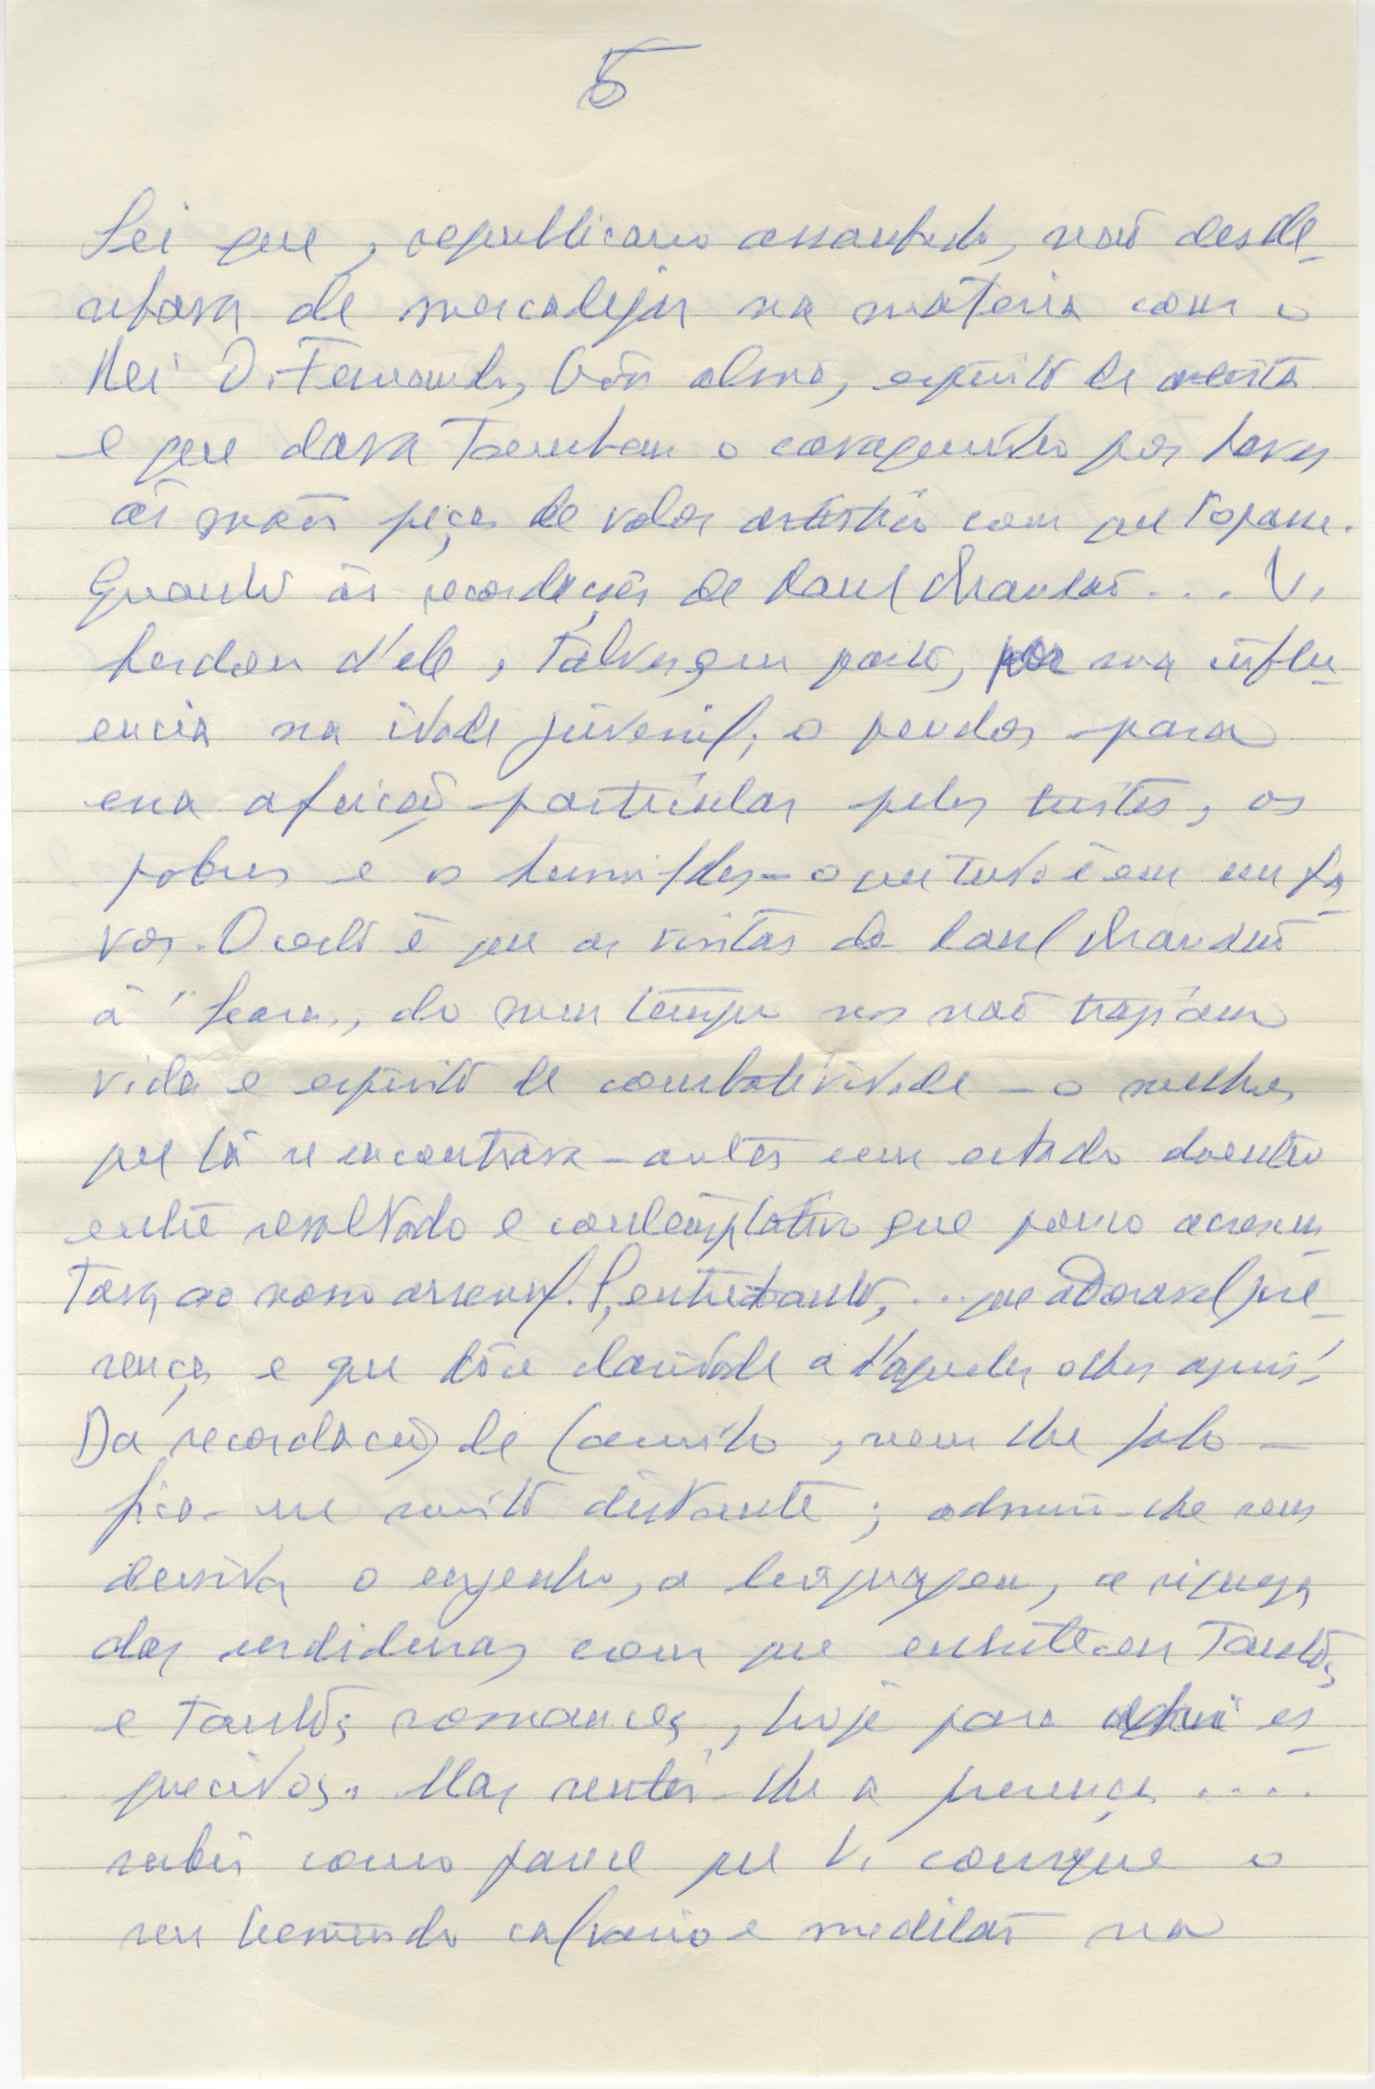 5
Sei que, republicano assanhado, não desde-
nhava de mercadejar na matéria com o
Rei D. Fernando, bôa alma, espirito de artista
e que dava tambem o cavaquinho por haver
ás mãos peças de valor artistico com que topasse.
Quanto ás recordações de Raul Brandão... V.
herdou d'ele, talvez em parte, por sua influ-
encia na idade juvenil, o pendor para
essa afeição particular pelos tristes, os
pobres e os humildes – o que tudo é em seu fa-
vor. O certo é que as visitas de Raul Brandão
á "Seara" do meu tempo nos não traziam
vida e espirito de combatividade – o melhor
que lá se encontrava – antes um estado doentio
entre revoltado e contemplativo que pouco acrescen-
tava ao nosso arsenal. E, entretanto, ... que adoravel pre-
sença e que dôce claridade a d'aqueles olhos azuis!
Da recordação de Camilo, nem lhe falo –
fica-me muito distante; admiro-lhe sem
duvida o engenho, a linguagem, a riqueza
das urdiduras com que enriqueceu tantos
e tantos romances, hoje para es-
quecidos. Mas sentir-lhe a presença ....
subir como parece que V. consegue o
seu tremendo calvario e meditar na